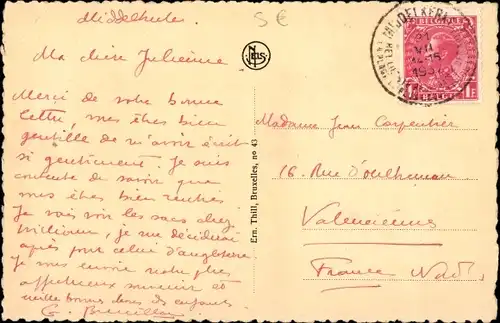 Middelkerke
5€
Ma chère Julienne
Merci de votre bonne
lettre, vous êtes bien
gentille de m'avoir écrit
si gentiment. Je suis
contente de savoir que
vous êtes bien rentrés
Je vais voir les sacs chez
je me déciderai
après pour celui d'angleterre
Je vous envoie votre plus
affectueux souvenir et
meilleurs bons des enfants
G.
NELS
Ern. Thill, Bruxelles, no 43
MIDDELKERKE
21
VII
1937
BELGIQUE
1F
Madame Jean Carpentier
16 Rue
Valenciennes
France Nord